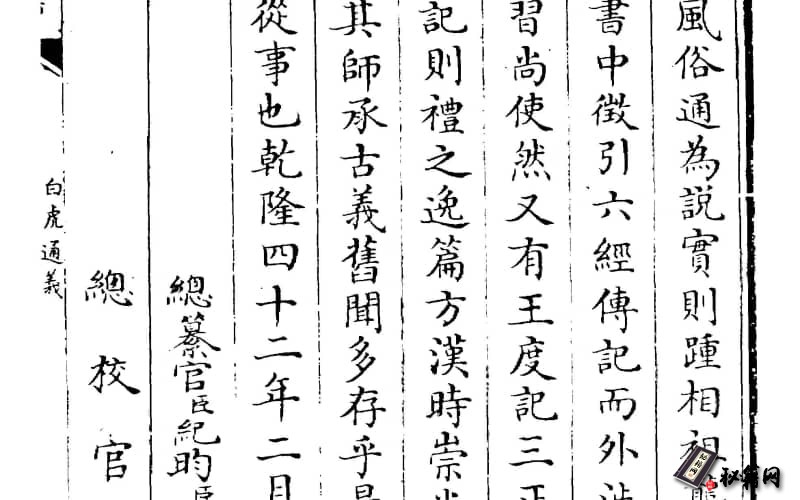 風俗通為説實則踵相祖
書中徵引六經傳記而外涉
習尚使然又有王度記三正
記則禮之逸篇方漢時崇尚
其師承古義舊聞多存乎是
從事也乾隆四十二年二月
總纂官臣紀昀臣
總校官
白虎通義
秘籍网